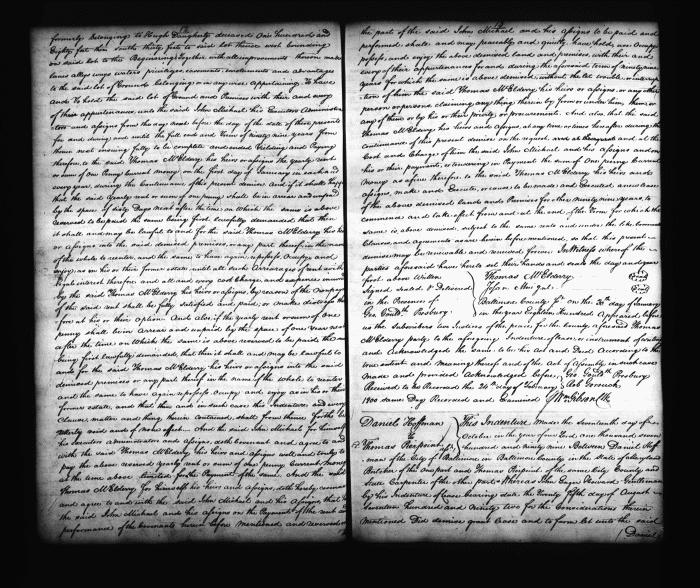 formerly belonging to Hugh Daugherty deceased One hundred and
Eighty feet then South thirty feet to said lot thence west bounding
on said lot to the Beginning Together with all improvements thereon made
lanes alleys ways waters priviledges easements, emoluments and advantages
to the said lot of Ground belonging or in anywise appertaining, To have
and To hold the said lot of Ground and Premises with their and every
of their appurtenances, unto the said John Michael his Executors Administra
tors and assigns from the day next before the day of the date of these presents
for and during and until the full end and Term of Ninety nine years from
thence next ensuing fully to be complete and ended Yielding and Paying
therefor to the said Thomas McEldery his heirs or assigns the yearly rent
or sum of one Penny Current money on the first day of January in each and
every year, during the Continuance of this present demise And if it shall happen
that the said yearly rent or sum of one penny shall be in arrear and unpaid
by the space of sixty Days next after the time on which the same is above
reserved to be paid the same being first lawfully demanded that then
it shall and may be lawful to and for the said Thomas McEldery his heirs
or assigns into the said demised premises, or any part thereof in the name
of the whole to reenter, and the same to have again, repossess, Occupy and
enjoy, as in his or their former estate, until all such Arrearages of rent with
legal interest therefor and all and every cost Charge, and expence incurred
by the said Thomas McEldery his heirs or assigns, by reason of the nonpayment
of the said rent shall be fully satisfied and paid, or make distress there
for at his or their Option. And also if the yearly rent or sum of one
penny shall be in Arrear and unpaid by the space of one Year next
after the time on which the same is above reserved to be paid the same
being first lawfully demanded, that then it shall and may be lawful to
and for the said Thomas McEldery his heirs or assigns into the said
demised premises or any part thereof in the name of the whole to reenter
and the same to have again repossess Occupy and enjoy as in his or their
former estate, and that then and in such case this Indenture and every
clause, matter and thing herein contained, shall from thence forth be
utterly void and of none effect. And the said John Michael for himself
his Executors administrators and Assigns, doth covenant and agree to and
with the said Thomas McEldery, his heirs and assigns well and truly to
pay the above reserved yearly rent or sum of one penny Current money
at the time above limited for the Payment of the same. And the said
Thomas McEldery for himself his heirs and assigns, doth hereby covenant
and agree to and with the said John Michael and his Assigns, that he
the said John Michael, and his assigns on the Payment of the rent and
performance of the Covenants herein before mentioned and reserved on
the part of the said John Michael and his Assigns to be paid and
performed shall and may peaceably and quietly have, hold, use occupy
possess, and enjoy the above demised land and premises, with their and
every of their appurtenances for and during the aforesaid term of ninety nine
years for which the same is above demised, without the let trouble, or interrup
tion of them the said Thomas McEldery his heirs or assigns, or any other
person or persons claiming, any thing therein by from or under him, them or
any of them or by his or their privity or procurement. And also that the said
Thomas McEldery his heirs and Assigns, at any time or times hereafter during the
continuance of this present demise on the request and at the
Cost and Charge of them the said John Michael and his Assigns and on
his or their payment, or tendering in Payment the sum of one penny Current
Money as a fine therefor to the said Thomas McEldery, his heirs and
assigns, make and Execute, or cause, to be made and Executed a new lease
of the above demised lands and Premises for other ninety nine years, to
commence and take effect from and at the end of the Term for which the
same is above demised, subject to the same rents and under the like Covenants
Clauses, and agreements as are herein before mentioned, so that this present
demise may be renewable and renewed forever. In Witness whereof the
parties aforesaid have hereto set their hands and seals the day and year
first above Written
Signed Sealed & Delivered
in the Presence of
Geo Goulds. Presbury
Thomas McEldery
Baltimore County Ss on the 30th day of January
in the year Eighteen Hundred Appeared before
us the Subscribers two Justices of the peace for the County aforesaid Thomas
McEldery party to the aforegoing Indenture of lease or instrument of writing
and Acknowledged the same to be his Act and Deed According to the
true intent and Meaning thereof and of the Act of Assembly in such case
Made and provided Acknowledged before, Geo Goulds. Presbury
Received to be Recorded the 24th day of February
1800 same Day Recorded and Examined Wm Gibson Clk
Daniel Hoffman
To
Thomas Pierpoint
This Indenture Made the Seventeenth day of
October in the year of our Lord, one thousand seven
hundred and ninety nine Between Daniel Hoff
man of the City of Baltimore in Baltimore County in the State of Maryland
Butcher of the one part and Thomas Pierpoint of the same City County and
State Carpenter of the other part Whereas John Eager Howard Gentleman
by his Indenture of Lease bearing date, the Twenty fifth day of August in
Seventeen hundred and Ninety two for the Considerations therein
Mentioned Did demise grant Lease and to farm let unto the said
(Daniel